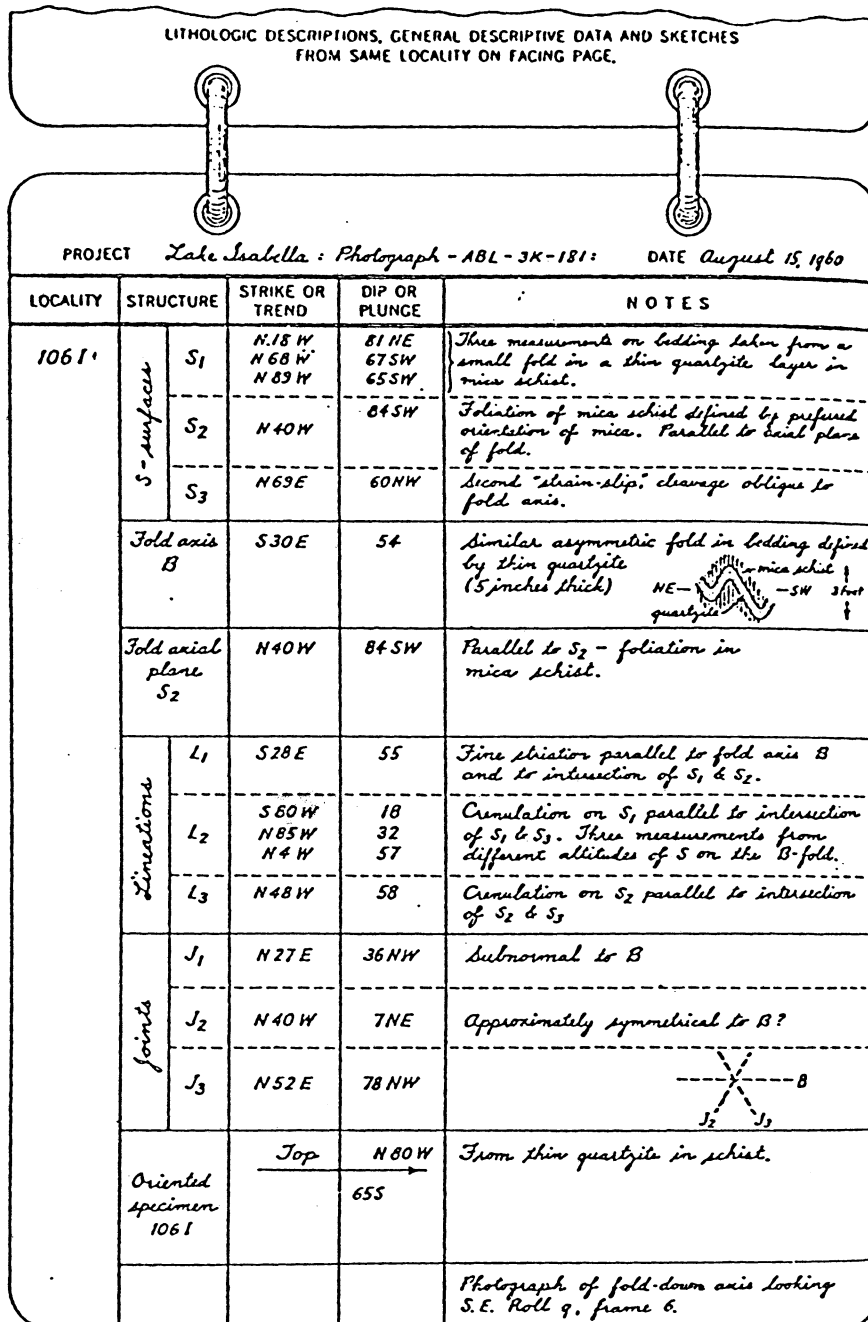 LITHOLOGIC DESCRIPTIONS, GENERAL DESCRIPTIVE DATA AND SKETCHES
FROM SAME LOCALITY ON FACING PAGE.
PROJECT Lake Isabella : Photograph - ABL - 3K - 181: DATE August 15, 1960
LOCALITY STRUCTURE STRIKE OR TREND DIP OR PLUNGE NOTES
106 I
S-surfaces
S1
N.18 W 81 NE
N 68 W 67SW
N 89 W 65SW
Three measurements on bedding taken from a
small fold in a thin quartzite layer in
mica schist.
S2 N 40W 84SW
Foliation of mica schist defined by preferred
orientation of mica. Parallel to axial plane
of fold.
S3 N69E 60NW
Second "strain-slip," cleavage oblique to
fold axis.
Fold axis
B
S30E 54
Similar asymmetric fold in bedding defined
by thin quartzite
(5 inches thick)
mica schist
NE SW
quartzite
Fold axial
plane
S2
N40W 84SW
Parallel to S2 - foliation in
mica schist.
Lineations
L1 S28E 55
Fine striation parallel to fold axis B
and to intersection of S1 & S2.
L2
S 80W 18
N85W 32
N4W 57
Crenulation on S1 parallel to intersection
of S1 & S3. Three measurements from
different attitudes of S on the B-fold.
L3 N48W 58
Crenulation on S2 parallel to intersection
of S2 & S3
Joints
J1 N27E 36NW Subnormal to B
J2 N40W 7NE Approximately symmetrical to B?
J3 N52E 78NW
B
J2 J3
Oriented
specimen
106 I
Top N80W
65S
From thin quartzite in schist.
Photograph of fold-down axis looking
S.E. Roll 9, frame 6.